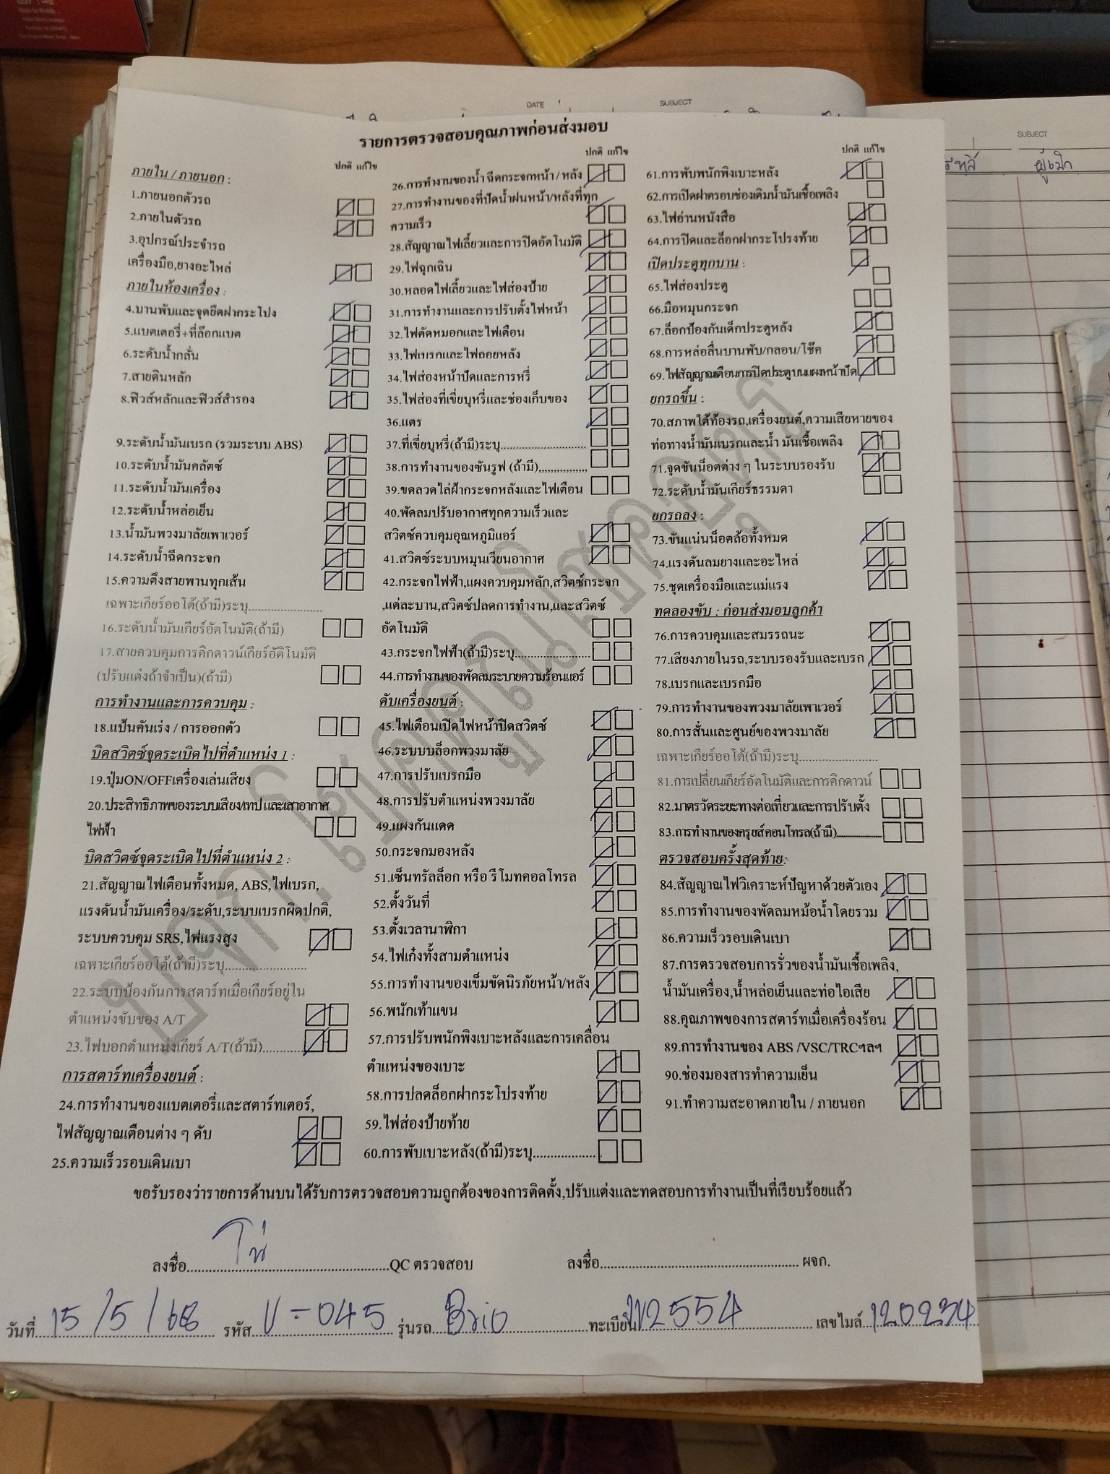 DATE
SUBJECT
SUBJECT
รายการตรวจสอบคุณภาพก่อนส่งมอบ
ปกติ แก้ไข
ภายใน / ภายนอก :
1.ภายนอกตัวรถ
2.ภายในตัวรถ
3.อุปกรณ์ประจำรถ
เครื่องมือ,ยางอะไหล่
ภายในห้องเครื่อง :
4.บานพับและจุดยึดฝากระโปง
5.แบตเตอรี่+ที่ล๊อกแบต
6.ระดับน้ำกลั่น
7.สายดินหลัก
8.ฟิวส์หลักและฟิวส์สำรอง
9.ระดับน้ำมันเบรก (รวมระบบ ABS)
10.ระดับน้ำมันคลัตซ์
11.ระดับน้ำมันเครื่อง
12.ระดับน้ำหล่อเย็น
13.น้ำมันพวงมาลัยเพาเวอร์
14.ระดับน้ำฉีดกระจก
15.ความตึงสายพานทุกเส้น
เฉพาะเกียร์ออโต้(ถ้ามี)ระบุ....................
16.ระดับน้ำมันเกียร์อัตโนมัติ(ถ้ามี)
17.สายควบคุมการคิกดาวน์เกียร์อัติโนมัติ
(ปรับแต่งถ้าจำเป็น)(ถ้ามี)
การทำงานและการควบคุม :
18.แป้นคันเร่ง / การออกตัว
บิดสวิตช์จุดระเบิดไปที่ตำแหน่ง 1 :
19.ปุ่มON/OFFเครื่องเล่นเสียง
20.ประสิทธิภาพของระบบเสียง/เทป และเสาอากาศ
ไฟฟ้า
บิดสวิตซ์จุดระเบิดไปที่ตำแหน่ง 2 :
21.สัญญาณไฟเตือนทั้งหมด, ABS,ไฟเบรก,
แรงดันน้ำมันเครื่อง/ระดับ,ระบบเบรกผิดปกติ,
ระบบควบคุม SRS,ไฟแรงสูง
เฉพาะเกียร์ออโต้(ถ้ามี)ระบุ......................
22.ระบบป้องกันการสตาร์ทเมื่อเกียร์อยู่ใน
ตำแหน่งขับของ A/T
23.ไฟบอกตำแหน่งเกียร์ A/T(ถ้ามี)..........
การสตาร์ทเครื่องยนต์ :
24.การทำงานของแบตเตอรี่และสตาร์ทเตอร์,
ไฟสัญญาณเตือนต่าง ๆ ดับ
25.ความเร็วรอบเดินเบา
ปกติ แก้ไข
26.การทำงานของน้ำฉีดกระจกหน้า/หลัง
27.การทำงานของที่ปัดน้ำฝนหน้า/หลังที่ทุก
ความเร็ว
28.สัญญาณไฟเลี้ยวและการปิดอัตโนมัติ
29.ไฟฉุกเฉิน
30.หลอดไฟเลี้ยวและไฟส่องป้าย
31.การทำงานและการปรับตั้งไฟหน้า
32.ไฟตัดหมอกและไฟเตือน
33.ไฟเบรกและไฟถอยหลัง
34.ไฟส่องหน้าปัดและการหรี่
35.ไฟส่องที่เขี่ยบุหรี่และช่องเก็บของ
36.แตร
37.ที่เขี่ยบุหรี่(ถ้ามี)ระบุ.........................
38.การทำงานของซันรูฟ (ถ้ามี)................
39.ขดลวดไล่ฝ้ากระจกหลังและไฟเตือน
40.พัดลมปรับอากาศทุกความเร็วและ
สวิตช์ควบคุมอุณหภูมิแอร์
41.สวิตซ์ระบบหมุนเวียนอากาศ
42.กระจกไฟฟ้า,แผงควบคุมหลัก,สวิตซ์กระจก
,แต่ละบาน,สวิตช์ปลดการทำงาน,และสวิตช์
อัตโนมัติ
43.กระจกไฟฟ้า(ถ้ามี)ระบุ......................
44.การทำงานของพัดลมระบายความร้อนแอร์
ดับเครื่องยนต์ :
45.ไฟเตือนเปิดไฟหน้าปิดสวิตซ์
46.ระบบบล็อกพวงมาลัย
47.การปรับเบรกมือ
48.การปรับตำแหน่งพวงมาลัย
49.แผงกันแดด
50.กระจกมองหลัง
51.เซ็นทรัลล็อก หรือ รีโมทคอลโทรล
52.ตั้งวันที่
53.ตั้งเวลานาฬิกา
54.ไฟเก๋งทั้งสามตำแหน่ง
55.การทำงานของเข็มขัดนิรภัยหน้า/หลัง
56.พนักเท้าแขน
57.การปรับพนักพิงเบาะหลังและการเคลื่อน
ตำแหน่งของเบาะ
58.การปลดล็อกฝากระโปรงท้าย
59.ไฟส่องป้ายท้าย
60.การพับเบาะหลัง(ถ้ามี)ระบุ..................
ปกติ แก้ไข
61.การพับพนักพิงเบาะหลัง
62.การเปิดฝาครอบช่องเติมน้ำมันเชื้อเพลิง
63.ไฟอ่านหนังสือ
64.การปิดและล็อกฝากระโปรงท้าย
เปิดประตูทุกบาน :
65.ไฟส่องประตู
66.มือหมุนกระจก
67.ล็อกป้องกันเด็กประตูหลัง
68.การหล่อลื่นบานพับ/กลอน/โช๊ค
69.ไฟสัญญาณเตือนการปิดประตูบนแผงหน้าปัด
ยกรถขึ้น :
70.สภาพใต้ท้องรถ,เครื่องยนต์,ความเสียหายของ
ท่อทางน้ำมันเบรกและน้ำมันเชื้อเพลิง
71.จุดขันน็อตต่าง ๆ ในระบบรองรับ
72.ระดับน้ำมันเกียร์ธรรมดา
ยกรถลง :
73.ขันแน่นน็อตล้อทั้งหมด
74.แรงดันลมยางและอะไหล่
75.ชุดเครื่องมือและแม่แรง
ทดลองขับ : ก่อนส่งมอบลูกค้า
76.การควบคุมและสมรรถนะ
77.เสียงภายในรถ,ระบบรองรับและเบรก
78.เบรกและเบรกมือ
79.การทำงานของพวงมาลัยเพาเวอร์
80.การสั่นและศูนย์ของพวงมาลัย
เฉพาะเกียร์ออโต้(ถ้ามี)ระบุ.....................
81.การเปลี่ยนเกียร์อัตโนมัติและการคิกดาวน์
82.มาตรวัดระยะทางต่อเที่ยวและการปรับตั้ง
83.การทำงานของครุยส์คอนโทรล(ถ้ามี)............
ตรวจสอบครั้งสุดท้าย:
84.สัญญาณไฟวิเคราะห์ปัญหาด้วยตัวเอง
85.การทำงานของพัดลมหม้อน้ำโดยรวม
86.ความเร็วรอบเดินเบา
87.การตรวจสอบการรั่วของน้ำมันเชื้อเพลิง,
น้ำมันเครื่อง,น้ำหล่อเย็นและท่อไอเสีย
88.คุณภาพของการสตาร์ทเมื่อเครื่องร้อน
89.การทำงานของ ABS /VSC/TRCฯลฯ
90.ช่องมองสารทำความเย็น
91.ทำความสะอาดภายใน / ภายนอก
ขอรับรองว่ารายการด้านบนได้รับการตรวจสอบความถูกต้องของการติดตั้ง,ปรับแต่งและทดสอบการทำงานเป็นที่เรียบร้อยแล้ว
ลงชื่อ..........QC ตรวจสอบ ลงชื่อ.......... ผจก.
วันที่ 15/5/68 รหัส V-045 รุ่นรถ Brio ทะเบียน 2554 เลขไมล์ 120234